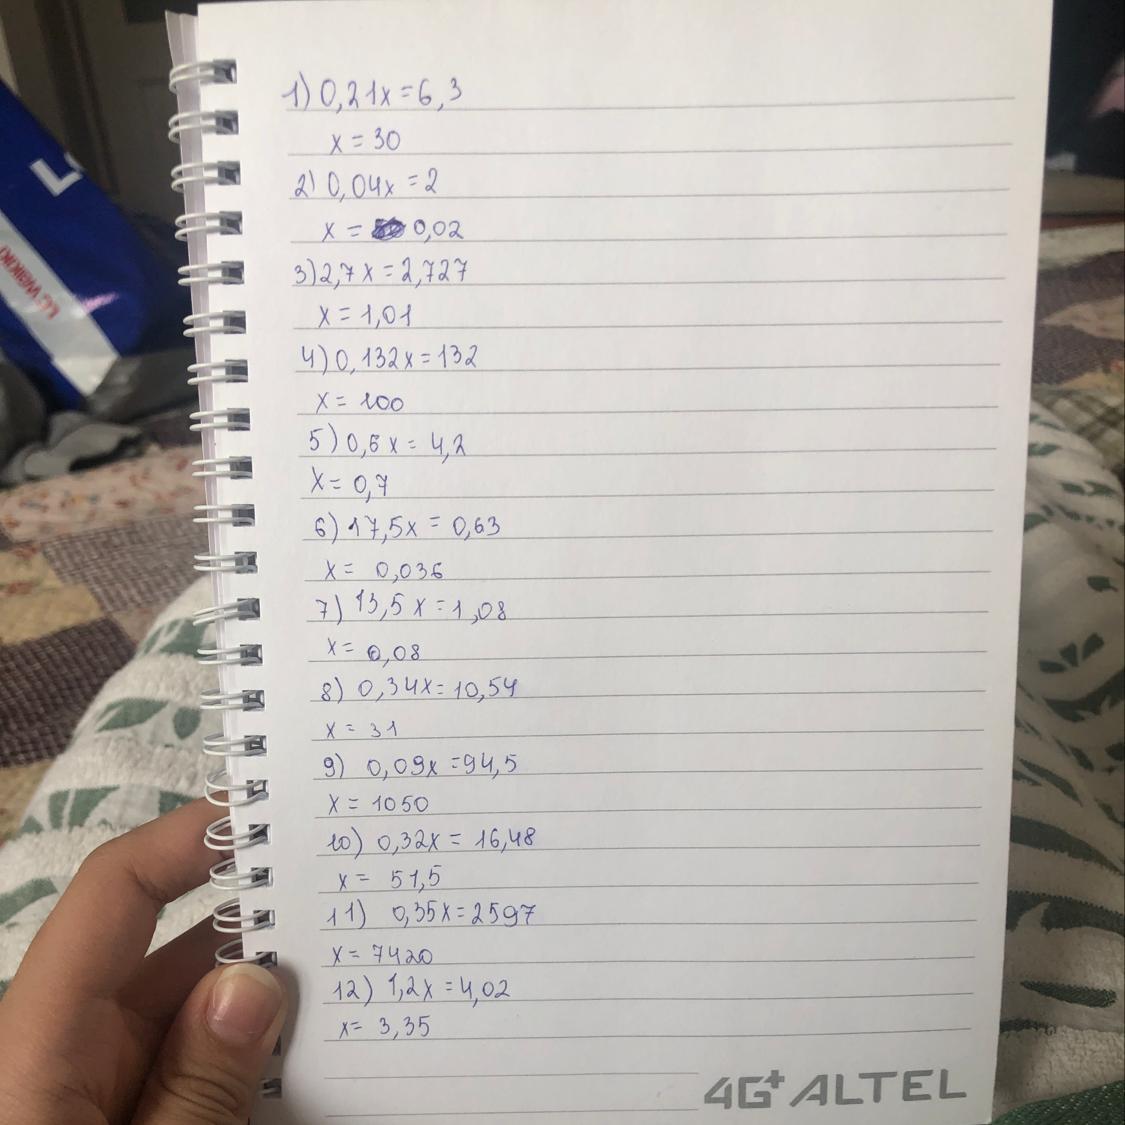 1) 0,21x = 6,3
x = 30
2) 0,04x = 2
x = 0,02
3) 2,7x = 2,727
x = 1,01
4) 0,132x = 132
x = 100
5) 0,6x = 4,2
x = 0,7
6) 17,5x = 0,63
x = 0,036
7) 13,5x = 1,08
x = 0,08
8) 0,34x = 10,54
x = 31
9) 0,09x = 94,5
x = 1050
10) 0,32x = 16,48
x = 51,5
11) 0,35x = 2597
x = 7420
12) 1,2x = 4,02
x = 3,35
4G+ ALTEL
LC WAIKIKI